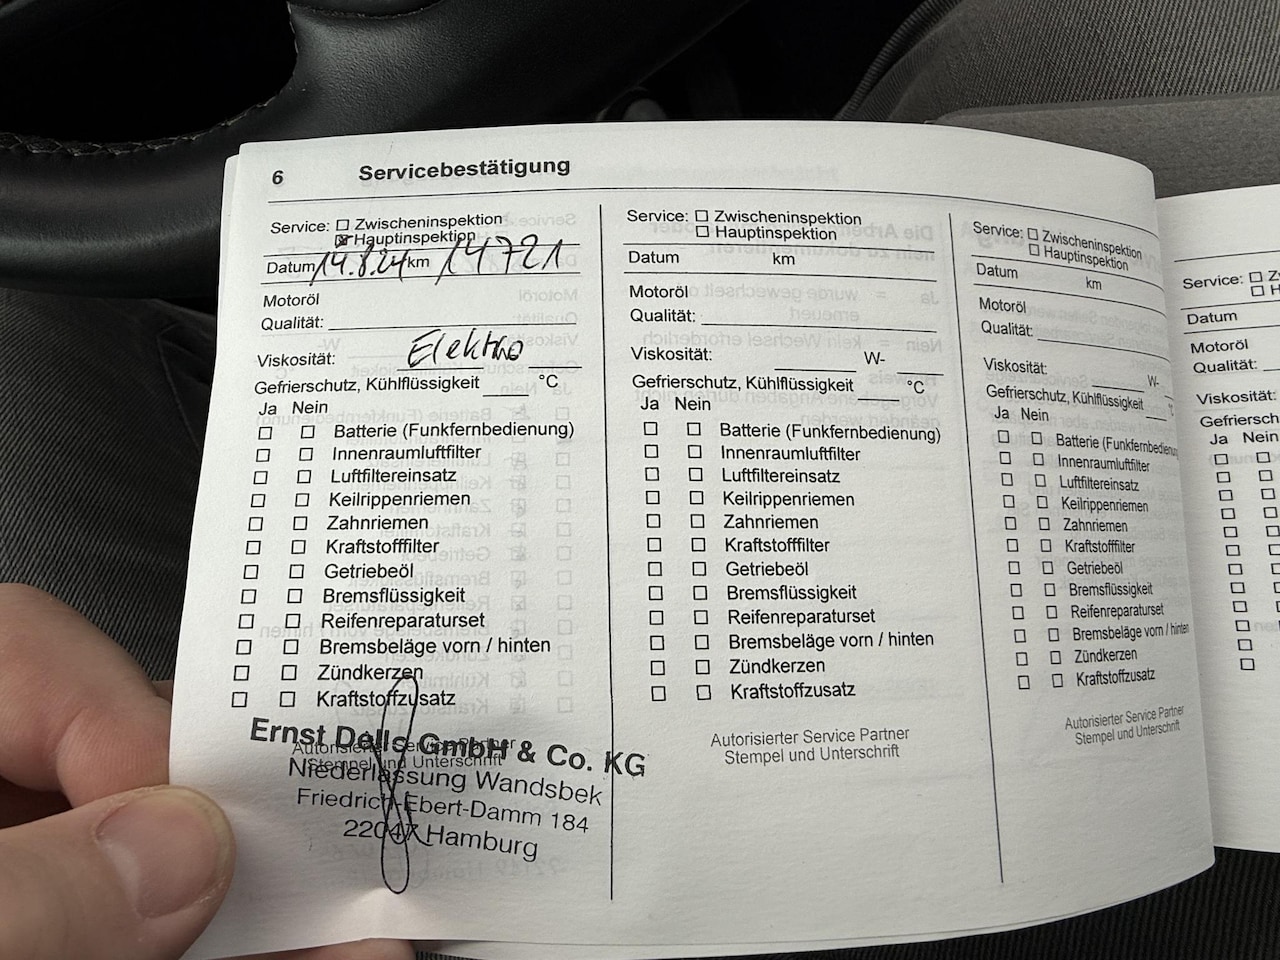 6 Servicebestätigung
Service: ☐ Zwischeninspektion
☒ Hauptinspektion
Datum 14.8.24 km 14721
Motoröl
Qualität:
Viskosität: Elektro
Gefrierschutz, Kühlflüssigkeit °C
Ja Nein
☐ ☐ Batterie (Funkfernbedienung)
☐ ☐ Innenraumluftfilter
☐ ☐ Luftfiltereinsatz
☐ ☐ Keilrippenriemen
☐ ☐ Zahnriemen
☐ ☐ Kraftstofffilter
☐ ☐ Getriebeöl
☐ ☐ Bremsflüssigkeit
☐ ☐ Reifenreparaturset
☐ ☐ Bremsbeläge vorn / hinten
☐ ☐ Zündkerzen
☐ ☐ Kraftstoffzusatz
Autorisierter Service Partner
Stempel und Unterschrift
Ernst Dello GmbH & Co. KG
Niederlassung Wandsbek
Friedrich-Ebert-Damm 184
22047 Hamburg
Service: ☐ Zwischeninspektion
☐ Hauptinspektion
Datum km
Motoröl
Qualität:
Viskosität: W-
Gefrierschutz, Kühlflüssigkeit °C
Ja Nein
☐ ☐ Batterie (Funkfernbedienung)
☐ ☐ Innenraumluftfilter
☐ ☐ Luftfiltereinsatz
☐ ☐ Keilrippenriemen
☐ ☐ Zahnriemen
☐ ☐ Kraftstofffilter
☐ ☐ Getriebeöl
☐ ☐ Bremsflüssigkeit
☐ ☐ Reifenreparaturset
☐ ☐ Bremsbeläge vorn / hinten
☐ ☐ Zündkerzen
☐ ☐ Kraftstoffzusatz
Autorisierter Service Partner
Stempel und Unterschrift
Service: ☐ Zwischeninspektion
☐ Hauptinspektion
Datum km
Motoröl
Qualität:
Viskosität: W-
Gefrierschutz, Kühlflüssigkeit
Ja Nein
☐ ☐ Batterie (Funkfernbedienung
☐ ☐ Innenraumluftfilter
☐ ☐ Luftfiltereinsatz
☐ ☐ Keilrippenriemen
☐ ☐ Zahnriemen
☐ ☐ Kraftstofffilter
☐ ☐ Getriebeöl
☐ ☐ Bremsflüssigkeit
☐ ☐ Reifenreparaturset
☐ ☐ Bremsbeläge vorn / hinten
☐ ☐ Zündkerzen
☐ ☐ Kraftstoffzusatz
Autorisierter Service Partner
Stempel und Unterschrift
Service: ☐ Z
☐ H
Datum
Motoröl
Qualität:
Viskosität:
Gefriersch
Ja Nein